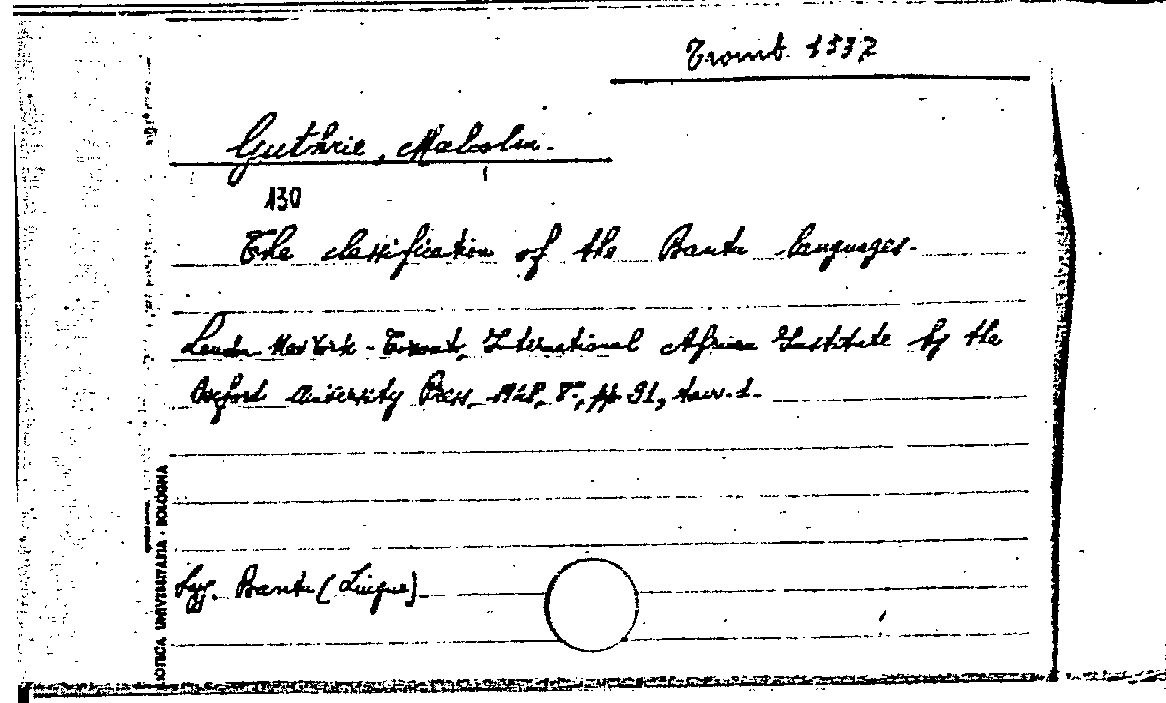 Tromb. 1537
Guthrie, Malcolm.
130
The classification of the Bantu languages.
London New York - Toronto, International African Institute by the
Oxford University Press, 1948, 8°, pp 91, tav. 1.
Sogg. Bantu (Lingue)
IOTECA UNIVERSITARIA - BOLOGNA